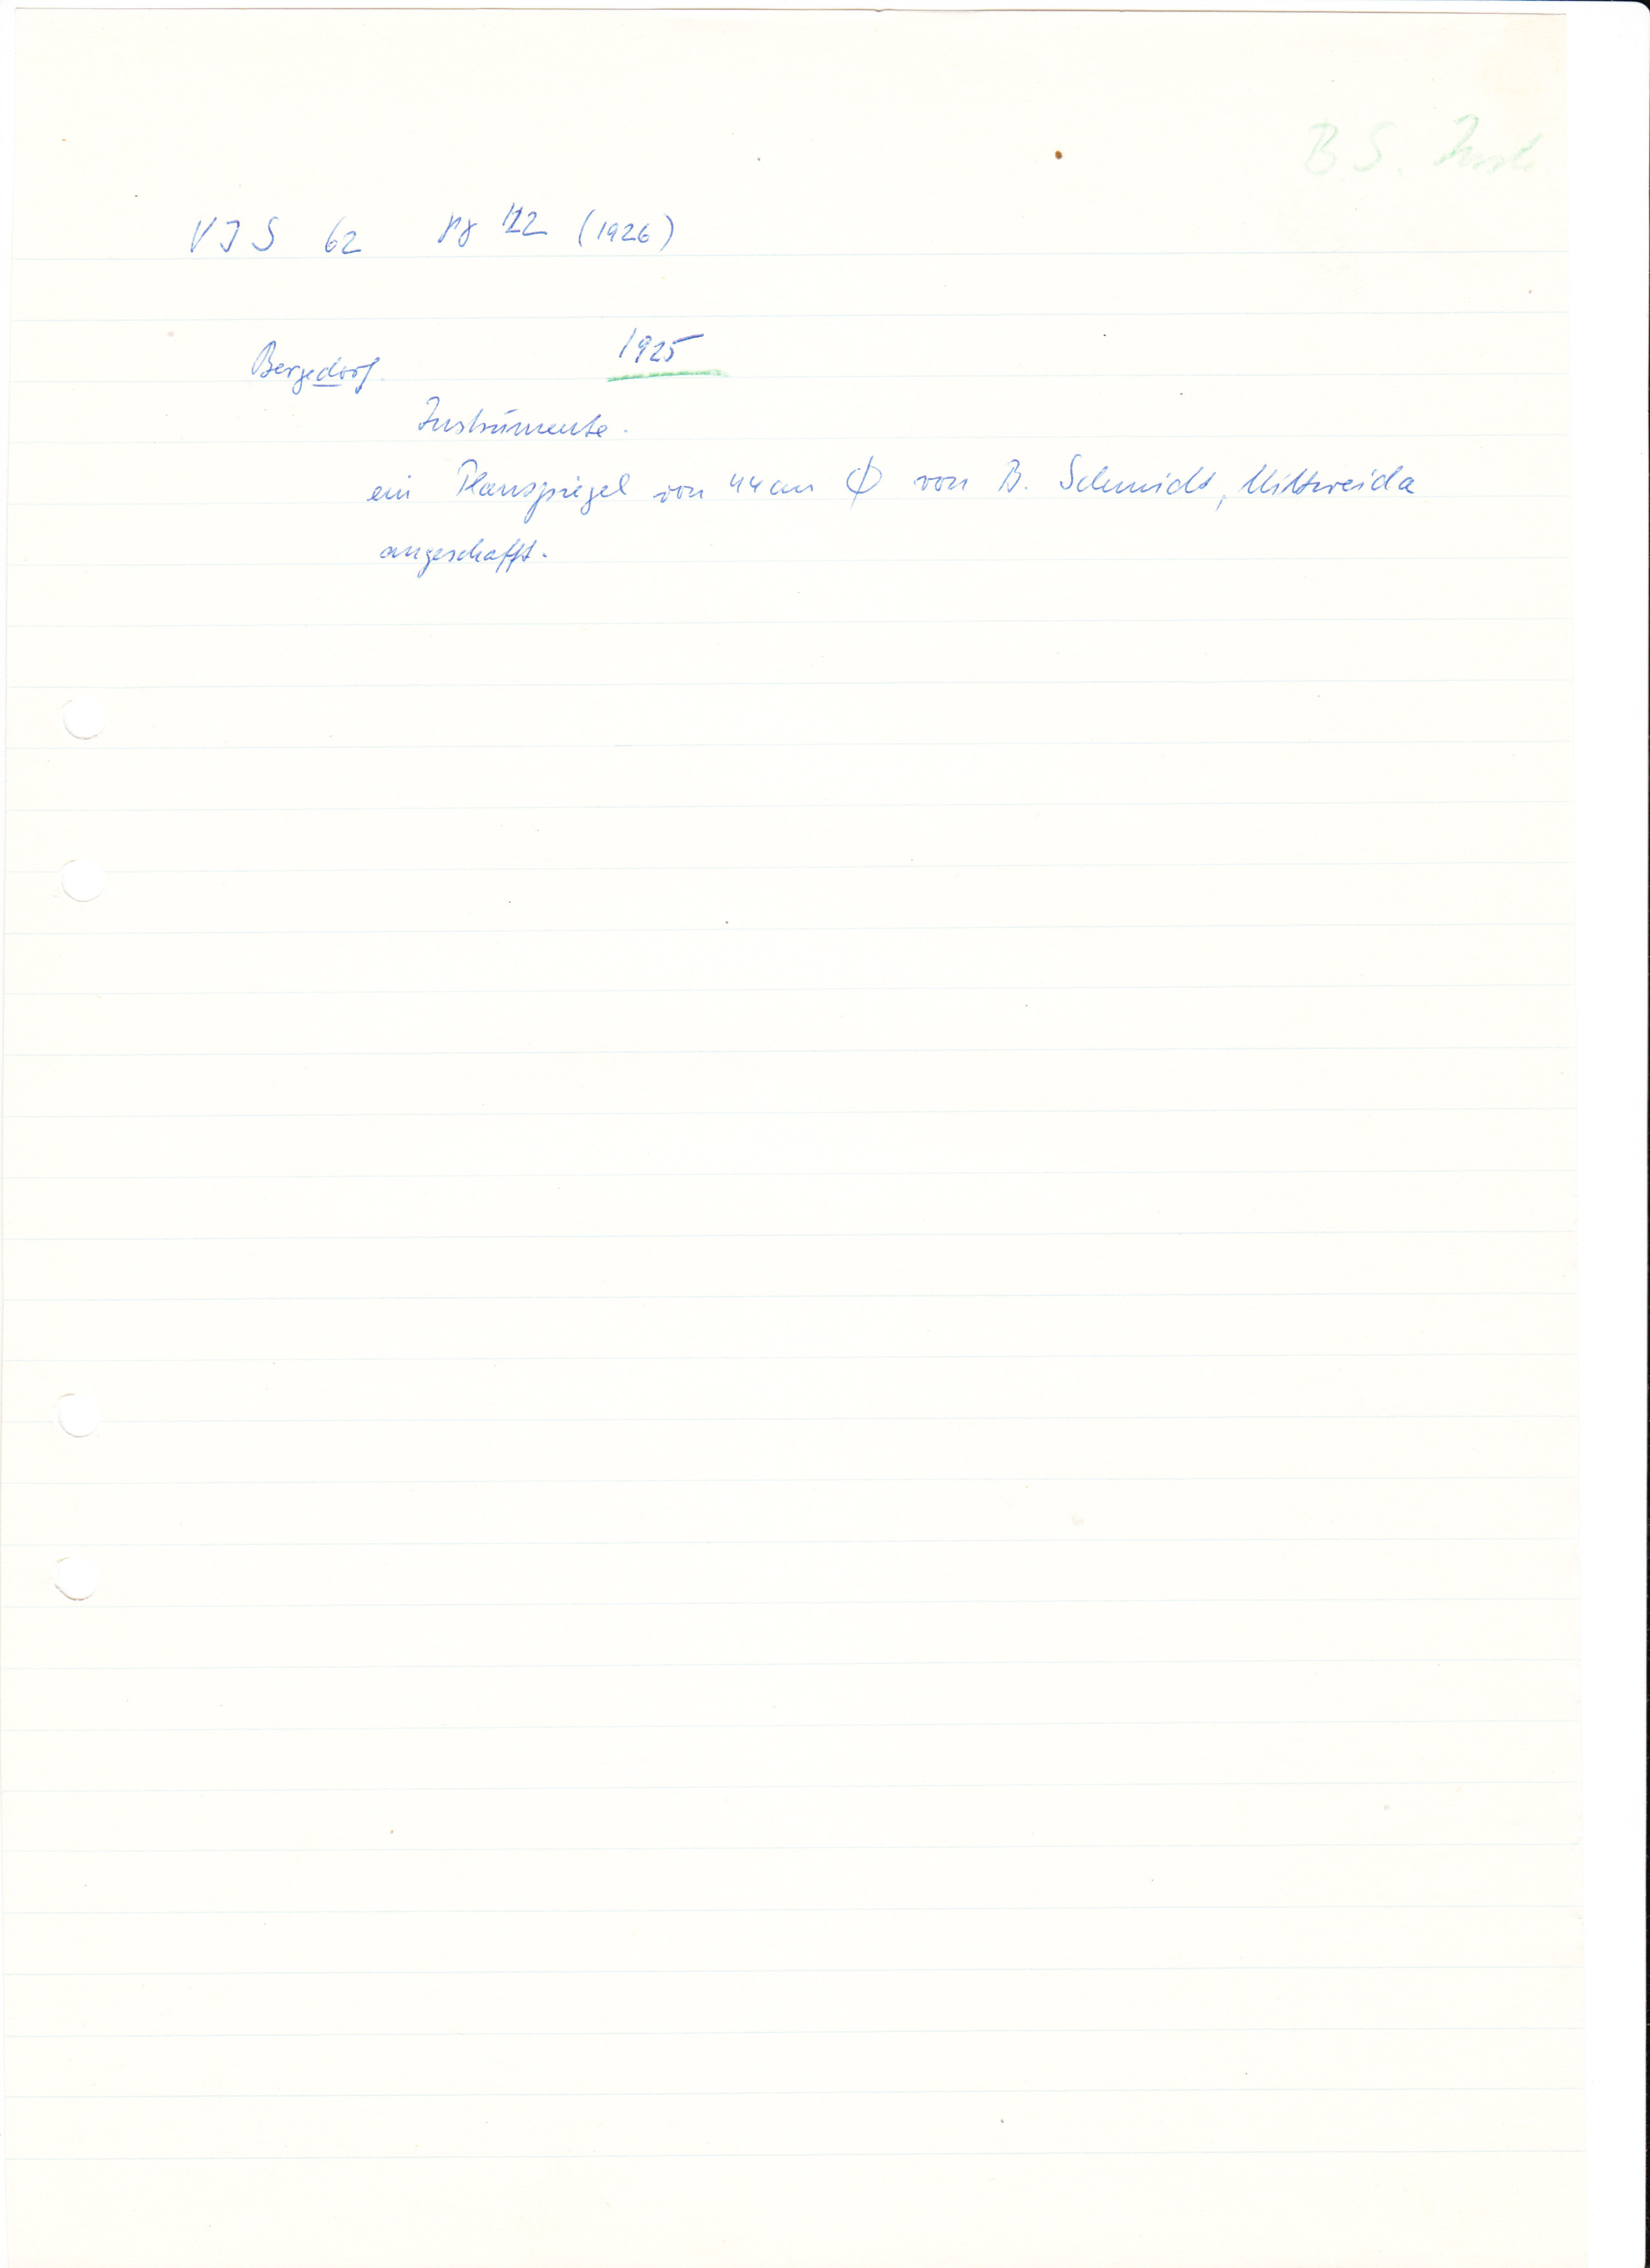 B.S. Inst.
VJS 62 pg 122 (1926)
1925
Bergedorf.
Instrumente.
ein Planspiegel von 44 cm ϕ von B. Schmidt, Mittweida
angeschafft.